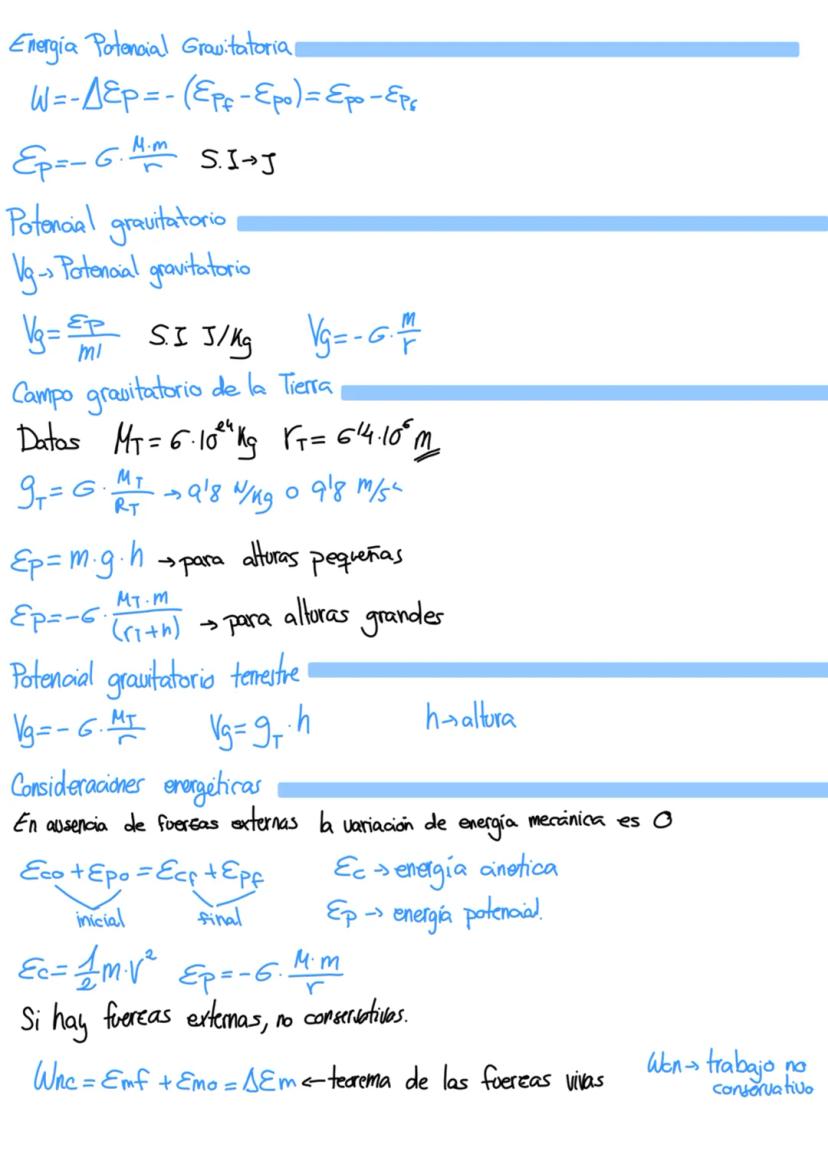 Energía Potencial Gravitatoria
W=-ΔEp=-(Epf-Epo)=Epo-Epf
Ep=-G·M·m/r S.I→J
Potencial gravitatorio
Vg→Potencial gravitatorio
Vg=Ep/m' S.I J/Kg Vg=-G·m/r
Campo gravitatorio de la Tierra
Datos M_T=6·10²⁴Kg r_T=6'4·10⁶m
g_T=G·M_T/R_T→9'8 N/Kg o 9'8 m/s²
Ep=m·g·h→para alturas pequeñas
Ep=-G·M_T·m/(r_T+h)→para alturas grandes
Potencial gravitatorio terrestre
Vg=-G·M_T/r Vg=g_T·h h→altura
Consideraciones energéticas
En ausencia de fuerzas externas la variación de energía mecánica es 0
Eco+Epo=Ecf+Epf Ec→energía cinetica
inicial final Ep→energía potencial.
Ec=1/2m·v² Ep=-G·M·m/r
Si hay fuerzas externas, no conservativas.
Wnc=Emf+Emo=ΔEm←teorema de las fuerzas vivas Wcn→trabajo no
conservativo